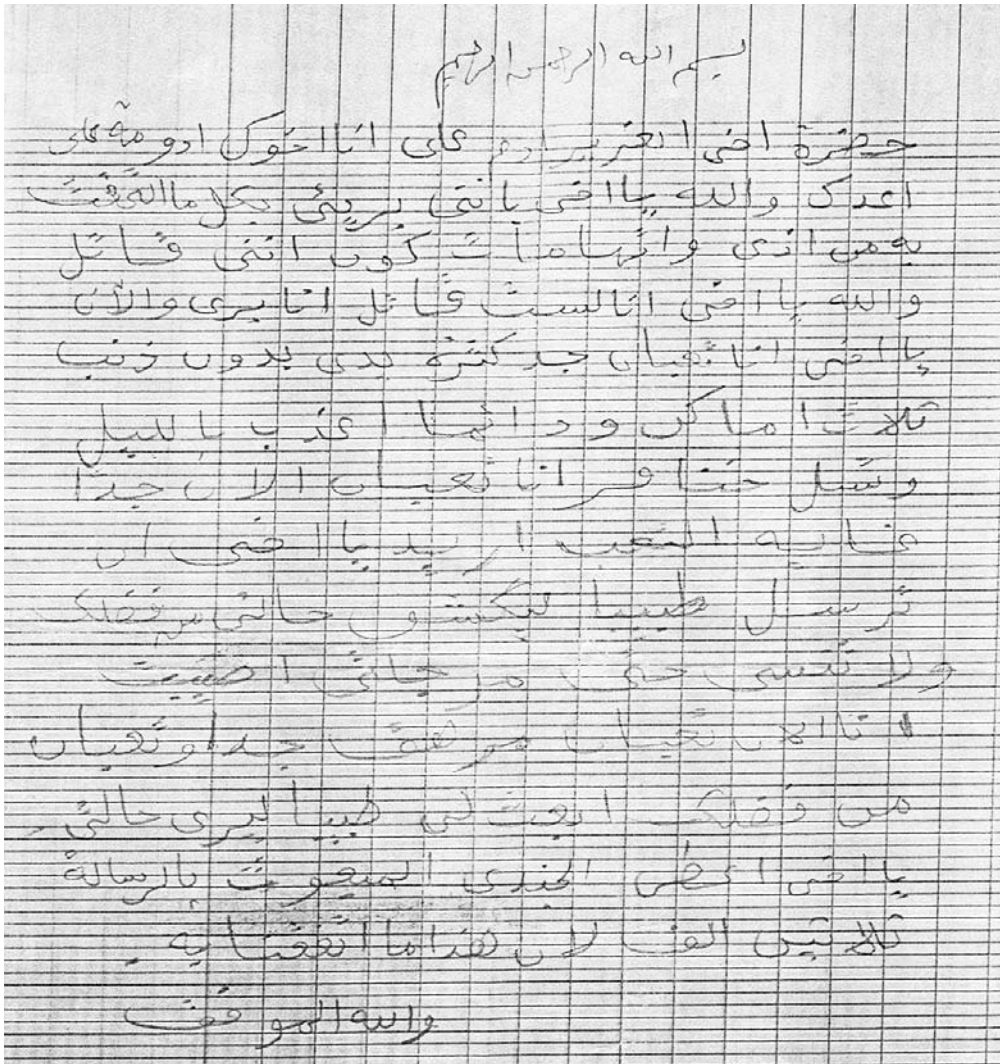 بسم الله الرحمن الرحيم
حضرة اخى العزيز ادم على انا اخوك ادومة على
اعدك والله يا اخى بانتى بريئى بكل ما التحقت
به من اذى واتهامات كون اننى قاتل
والله يا اخى انا لست قاتل انا برى والان
يا اخى انا تعبان جد بدى بدون ذنب
ثلاث اماكن ودائما اعذب بالليل
انا تعبان الان جدا
غايه التعب اريد يا اخى ان
ترسل طبيبا ليكشف حالتى من فضلك
ولا تنسى حتى
انا الان تعبان مرهق جدا وتعبان
من فضلك ابعث لى طبيبا ليرى حالتى
يا اخى اعطى الجندى المبعوث بالرسالة
ثلاثين الف لان هذا ما اتفقنا به
والله الموفق